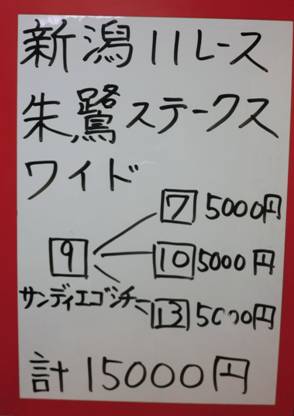 新潟11レース
朱鷺ステークス
ワイド
7 5000円
9 10 5000円
サンディエゴシチー 13 5000円
計15000円